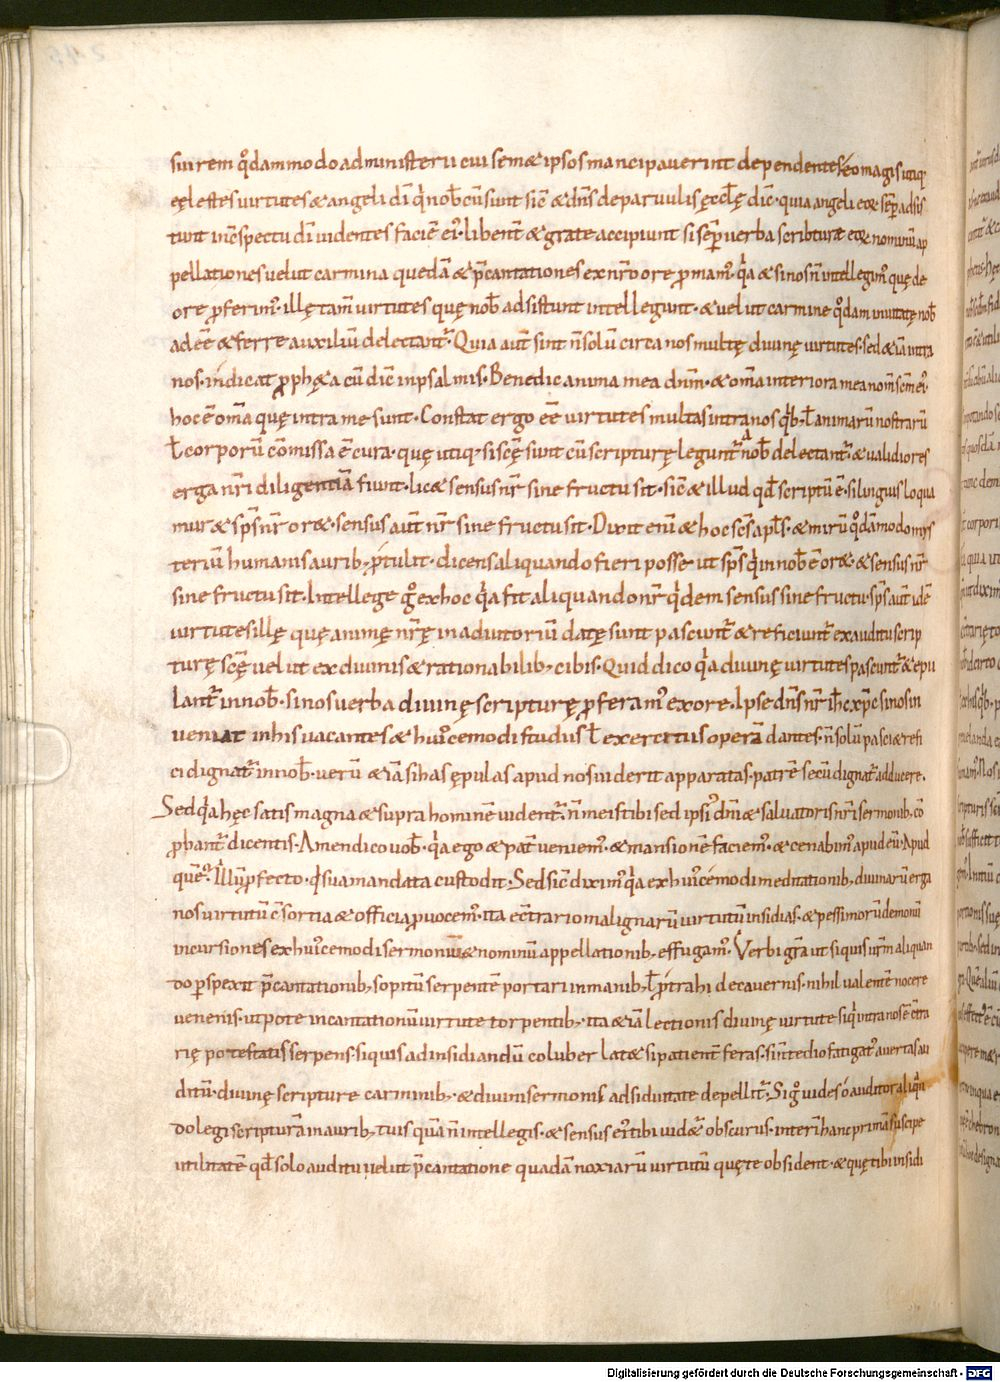 sui rem q̊dammodo administerii cui semæipsos mancipaverint dependentes. eo magis utiq;
cęlestes virtutes & angeli dī q̇ nob̄ cū sunt sic̄ & dn̄s de parvulis ęccl̄ę dic̄. quia angeli eoꝝ sēp adsis
tunt in c̄spectu dī videntes faciē ei᷒. libent̄ & grate accipiunt si sēp verba scripturæ & nominū ap
pellationes velut carmina quedā & p̄cantationes ex nr̄o ore ꝓmam᷒. q̇a & si nos n̄ intellegim᷒ quę de
ore ꝓferim᷒. illę tam̄ virtutes quę nob̄ adsistunt intellegunt. & velut carmine q̊dam invitatę nob̄
adeē & ferre auxiliū delectant᷑. Quia aut̄ sint n̄ solū circa nos multę divinę virtutes. sed & iā intra
nos. indicat ꝓph&a cū dic̄ in psalmis. Benedic anima mea dn̄m. & om̄a interiora mea nom̄ sc̄m ei᷒.
hoc ē om̄a quę intra me sunt. Constat ergo eē virtutes multas intra nos q̇b; ł animarū nostrarū
ł corporū cōmissa ē cura. quę utiq; si sc̄ę sunt cū scripturę legunt᷑ a nob̄ delectant᷑ & validiores
erga nr̄i diligentiā fiunt. lic& sensus nr̄ sine fructu sit. sic̄ & illud qđ scriptū ē. si linguis loqua
mur & sp̄s nr̄ or&. sensus aut̄ nr̄ sine fructu sit. Dixit enī & hoc sc̄s apl̄s. & mirū q̊dāmodo mys
teriū humanis aurib; ꝓtulit. dicens aliquando fieri posse ut sp̄s q̇ in nob̄ ē or&. & sensus nr̄
sine fructu sit. Intellege g̊ ex hoc q̇a fit aliquando nr̄ q̇dem sensus sine fructu. sp̄s aut̄ idē
virtutes illę quę animę nr̄ę in adiutoriū datę sunt pascunt᷑ & reficiunt᷑ ex auditu scrip
turę sc̄ę velut ex divinis & rationabilib; cibis. Quid dico q̇a divinę virtutes pascunt᷑ & epu
lant᷑ in nob̄. si nos verba divinę scripturę ꝓferam᷒ ex ore. Ipse dn̄s nr̄ ih̄c xp̄c si nos in
veniat in his vacantes & hui᷒cemodi studiis ł exercitiis operā dantes. n̄ solū pasci & refi
ci dignat᷑ in nob̄. verū & iā si has ępulas apud nos viderit apparatas. patrē secū dignat᷑ adducere.
Sed q̇a hęc satis magna & supra hominē vident᷑. n̄ meis tibi sed ipsi᷒ dn̄i & salvatoris nr̄i sermonib; cō
ꝓbant᷑ dicentis. Amen dico vob̄. q̇a ego & pat̄ veniem᷒. & mansionē faciem᷒. & cenabim᷒ apud eū. Apud
quē? Illū ꝓfecto. q̇ sua mandata custodit. Sed sic̄ dixim᷒ q̇a ex hui᷒cemodi meditationib; divinarū erga
nos virtutū c̄sortia & officia ꝓvocem᷒. ita ec̄trario malignarū virtutū insidias. & pessimorū demonū
incursiones ex hui᷒cemodi sermonū & nominū appellationib; effugam᷒. Verbi gr̄a ut si quis ur̄m aliquan
do ꝑspexit p̄cantationib; sopitū serpentē portari in manib; ł ꝓtrahi de cavernis. nihil valentē nocere
venenis. utpote incantationū virtute torpentib;. ita & iā lectionis divinę virtute si q̇ intra nos ē c̄tra
rię potestatis serpens. si quis ad insidiandū coluber lat& si patient̄ feras. si n̄ tedio fatigat᷒ avertas au
ditū. divinę scripture carminib;. & divini sermonis adsiduitate depellit᷑. Si g̊ vides o auditor aliq̇n
do legi scripturā in aurib; tuis quā n̄ intellegis. & sensus ei᷒ tibi vid&᷑ obscurus. interī hanc primā suscipe
utilitatē qđ solo auditu velut p̄cantatione quadā noxiarū virtutū quę te obsident. & quę tibi insidi
Digitalisierung gefördert durch die Deutsche Forschungsgemeinschaft - DFG